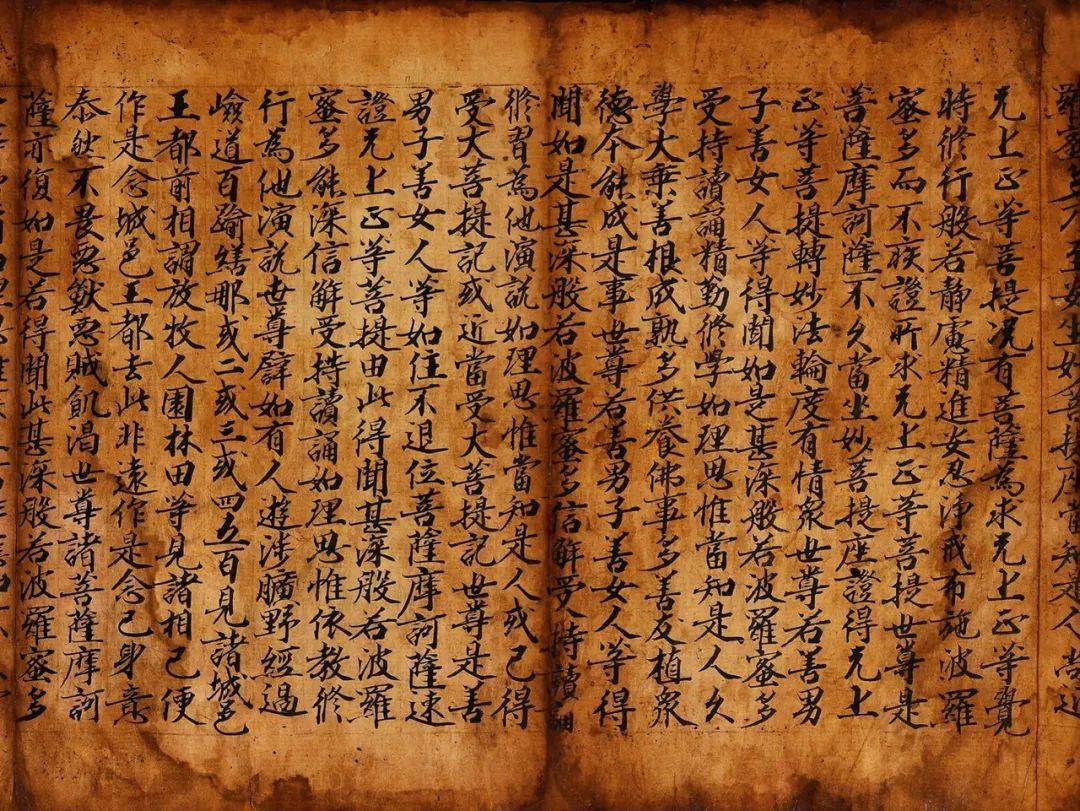 无上正等菩提况有菩薩為求无上正等覺
時脩行般若静慮精進安忍淨戒布施波羅
蜜多而不疾證所求无上正等菩提世尊是
菩薩摩訶薩不久當坐妙菩提座證得无上
正等菩提轉妙法輪度有情衆世尊若善男
子善女人等得聞如是甚深般若波羅蜜多
受持讀誦精勤脩學如理思惟當知是人久
學大乗善根成熟多供養佛事多善友植衆
德本能成是事世尊若善男子善女人等得
聞如是甚深般若波羅蜜多信解受持讀
脩習為他演說如理思惟當知是人或已得
受大菩提記或近當受大菩提記世尊是善
男子善女人等如住不退位菩薩摩訶薩速
證无上正等菩提由此得聞甚深般若波羅
蜜多能深信解受持讀誦如理思惟依教脩
行為他演說世尊譬如有人遊涉曠野經過
嶮道百踰繕那或二或三或四五百見諸城邑
王都前相謂放牧人園林田等見諸相已便
作是念城邑王都去此非遠作是念已身意
泰然不畏惡獸惡賊飢渴世尊諸菩薩摩訶
薩亦復如是若得聞此甚深般若波羅蜜多